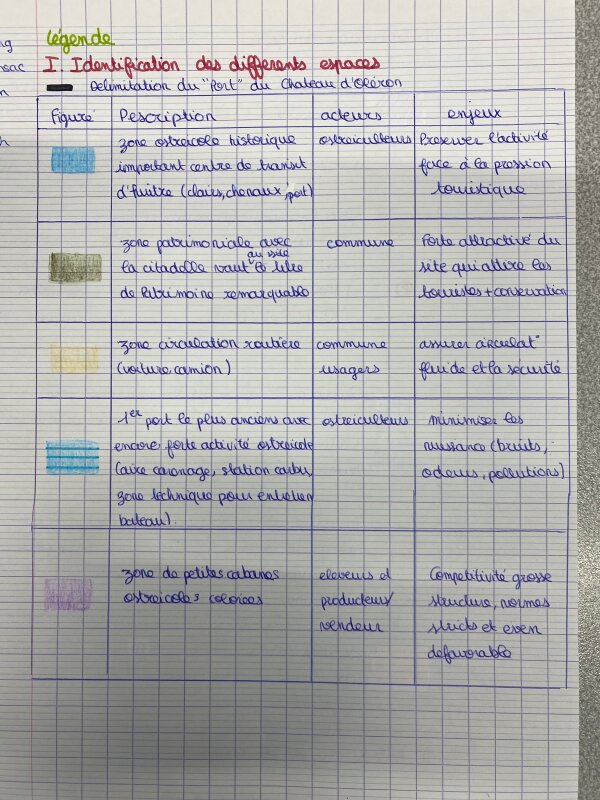 ng
sac
n
h
légende
I. Identification des differents espaces
Délimitation du "Port" du Chateau d'Oléron
Figuré Description acteurs enjeux
zone ostreicole historique
important centre de transit
d'huître (claires, chenaux, port)
ostreiculteurs
Preserver l'activité
face à la pression
touristique
zone patrimoniale avec
au site
la citadelle vaut le titre
de Patrimoine remarquable
commune
Forte attractivé du
site qui attire les
touristes + conservation
zone circulation routière
(voiture, camion)
commune
usagers
assurer circulat°
fluide et la sécurité
1er port le plus anciens avec
encore forte activité ostreicole
(aire carénage, station carbu,
zone technique pour entretien
bateau).
ostreiculteurs
minimiser les
nuissance (bruits,
odeurs, pollutions)
zone de petites cabanes
ostreicoles colorées
eleveurs et
producteur/
vendeur
Compétitivité grosse
structure, normes
stricts et
défavorable